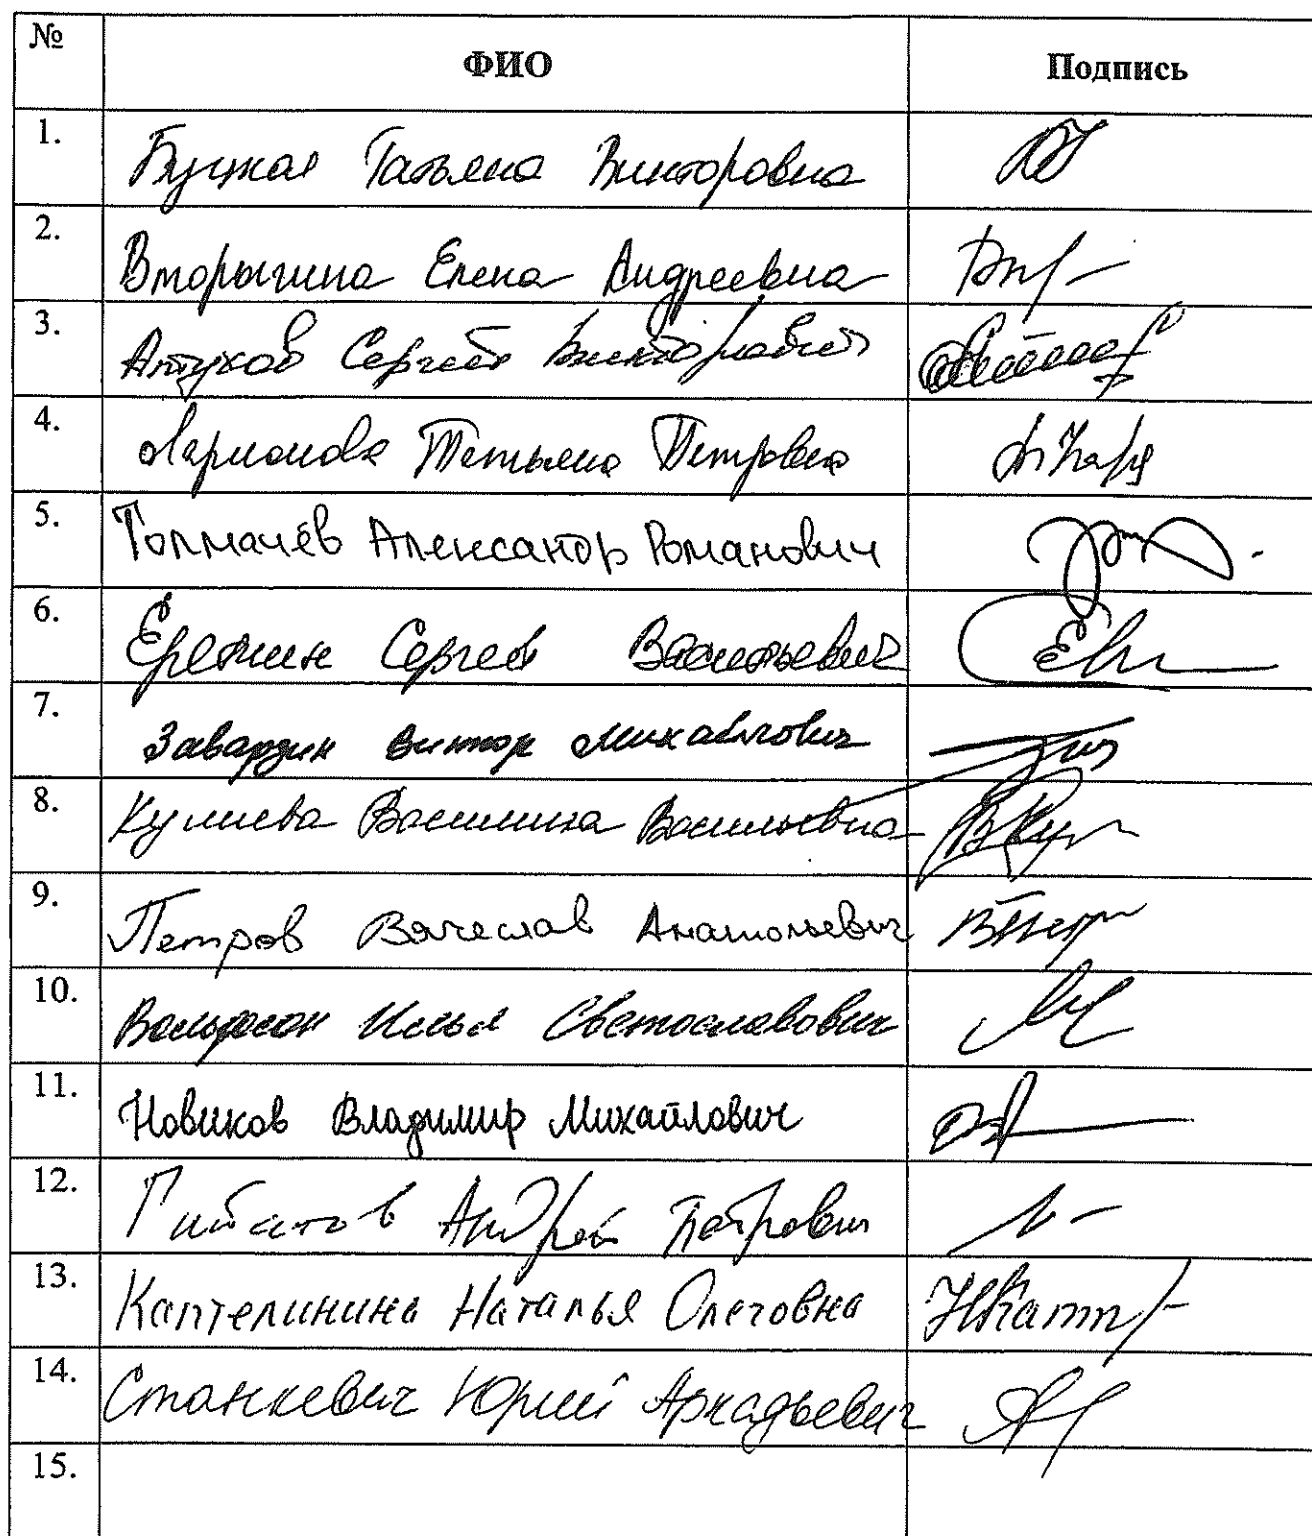 № ФИО Подпись
1. Буцкая Татьяна Викторовна
2. Вторыгина Елена Андреевна
3. Алтухов Сергей Викторович
4. Ларионова Татьяна Петровна
5. Толмачёв Александр Романович
6. Еремин Сергей Васильевич
7. Завардин Виктор Михайлович
8. Кулиева Василина Васильевна
9. Петров Вячеслав Анатольевич
10. Вольфсон Илья Светославович
11. Новиков Владимир Михайлович
12. Андрей Петрович
13. Каптелинина Наталья Олеговна
14. Станкевич Юрий Аркадьевич
15.